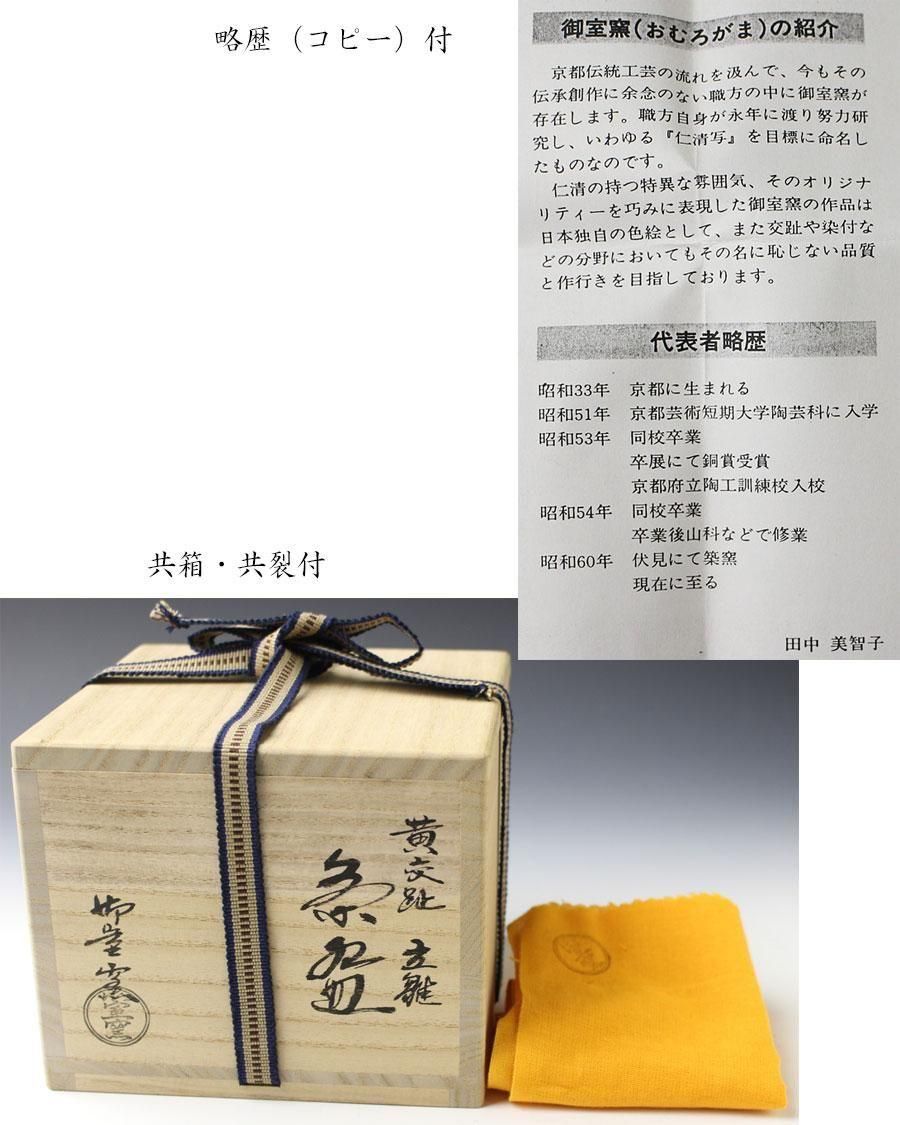 略歴（コピー）付
御室窯(おむろがま)の紹介
京都伝統工芸の流れを汲んで、今もその
伝承創作に余念のない職方の中に御室窯が
存在します。職方自身が永年に渡り努力研
究し、いわゆる『仁清写』を目標に命名し
たものなのです。
仁清の持つ特異な雰囲気、そのオリジナ
リティーを巧みに表現した御室窯の作品は
日本独自の色絵として、また交趾や染付な
どの分野においてもその名に恥じない品質
と作行きを目指しております。
代表者略歴
昭和33年 京都に生まれる
昭和51年 京都芸術短期大学陶芸科に入学
昭和53年 同校卒業
卒展にて銅賞受賞
京都府立陶工訓練校入校
昭和54年 同校卒業
卒業後山科などで修業
昭和60年 伏見にて築窯
現在に至る
田中 美智子
共箱・共裂付
黄交趾 立雛
茶盌
御室窯